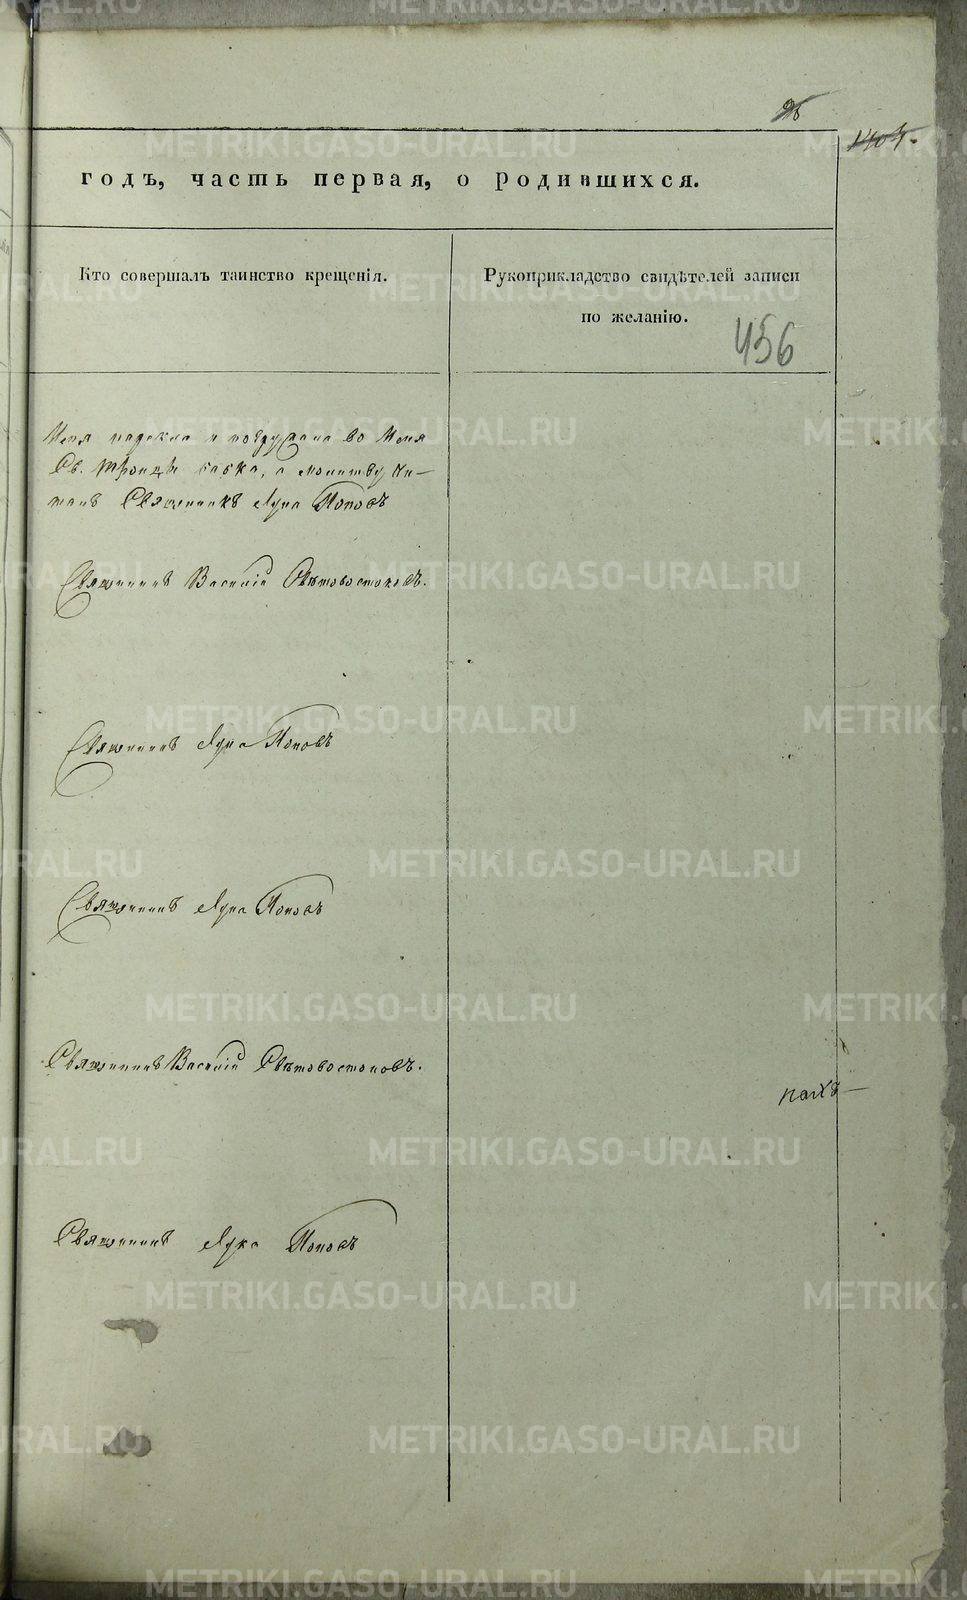 годъ, часть первая, о родившихся.
Кто совершалъ таинство крещенія.
Рукоприкладство свидѣтелей записи
по желанію.
456
Имя наречено и погружала во Имя
Св. Троицы бабка, а молитву чи-
талъ Священникъ Лука Поповъ
Священникъ Василій Свѣтовостоковъ.
Священникъ Лука Поповъ
Священникъ Лука Поповъ
Священникъ Василій Свѣтовостоковъ.
Священникъ Лука Поповъ
METRIKI.GASO-URAL.RU